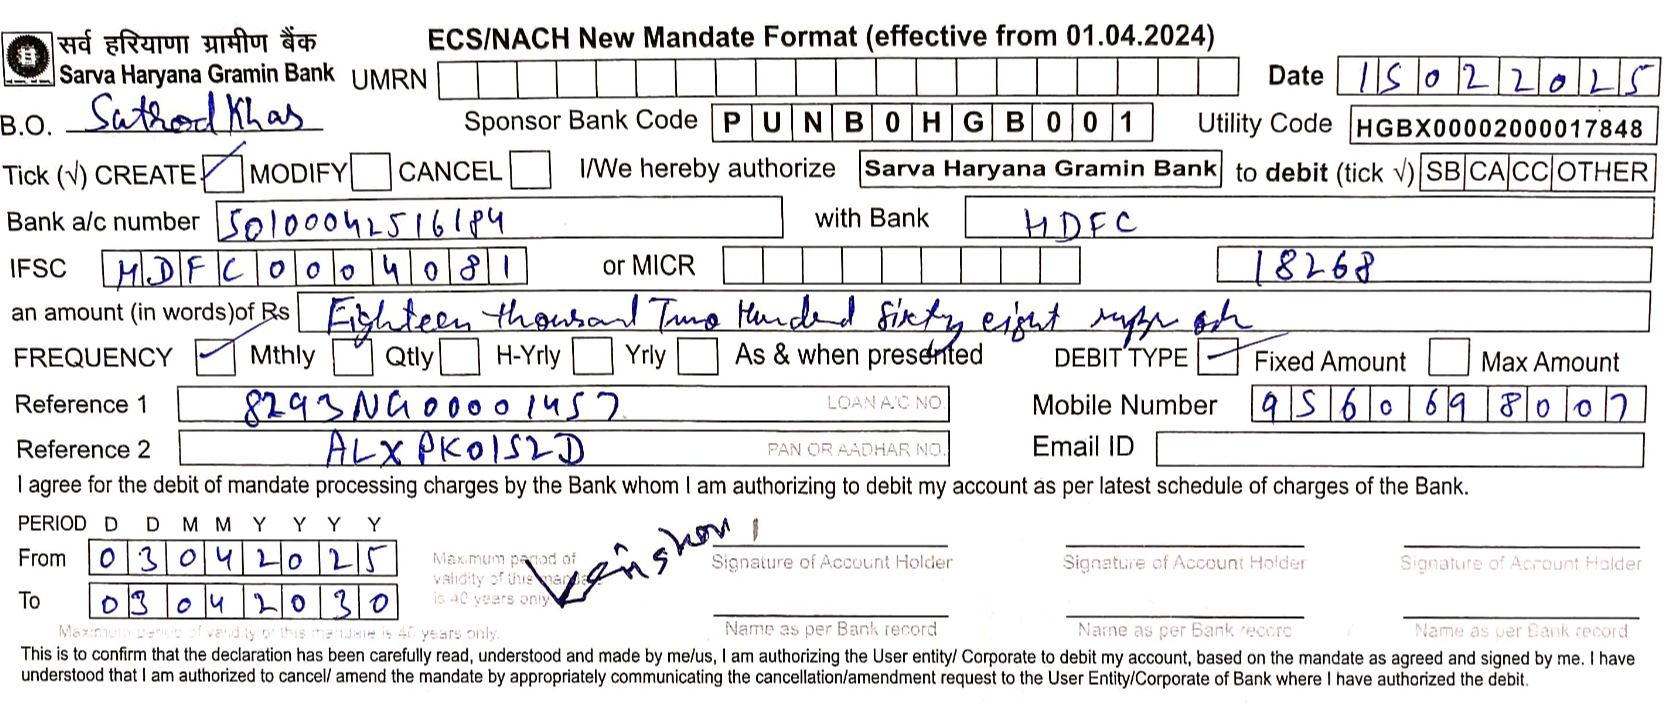 सर्व हरियाणा ग्रामीण बैंक
Sarva Haryana Gramin Bank
ECS/NACH New Mandate Format (effective from 01.04.2024)
UMRN
Date 15022025
B.O. Sathrod Khas
Sponsor Bank Code PUNB0HGB001
Utility Code HGBX00002000017848
Tick (√) CREATE MODIFY CANCEL I/We hereby authorize Sarva Haryana Gramin Bank to debit (tick √) SB CA CC OTHER
Bank a/c number 50100042516184 with Bank HDFC
IFSC HDFC0004081 or MICR 18268
an amount (in words)of Rs Eighteen thousand Two Hundred Sixty eight
FREQUENCY Mthly Qtly H-Yrly Yrly As & when presented DEBIT TYPE Fixed Amount Max Amount
Reference 1 8293NG00001457 LOAN A/C NO Mobile Number 9560698007
Reference 2 ALXPK0152D PAN OR AADHAR NO. Email ID
I agree for the debit of mandate processing charges by the Bank whom I am authorizing to debit my account as per latest schedule of charges of the Bank.
PERIOD D D M M Y Y Y Y
From 03042025
To 03042030
Maximum period of
validity of this
is 40 years only
Signature of Account Holder Signature of Account Holder Signature of Account Holder
Name as per Bank record Name as per Bank record Name as per Bank record
Maximum period of validity of this mandate is 40 years only.
This is to confirm that the declaration has been carefully read, understood and made by me/us, I am authorizing the User entity/ Corporate to debit my account, based on the mandate as agreed and signed by me. I have
understood that I am authorized to cancel/ amend the mandate by appropriately communicating the cancellation/amendment request to the User Entity/Corporate of Bank where I have authorized the debit.